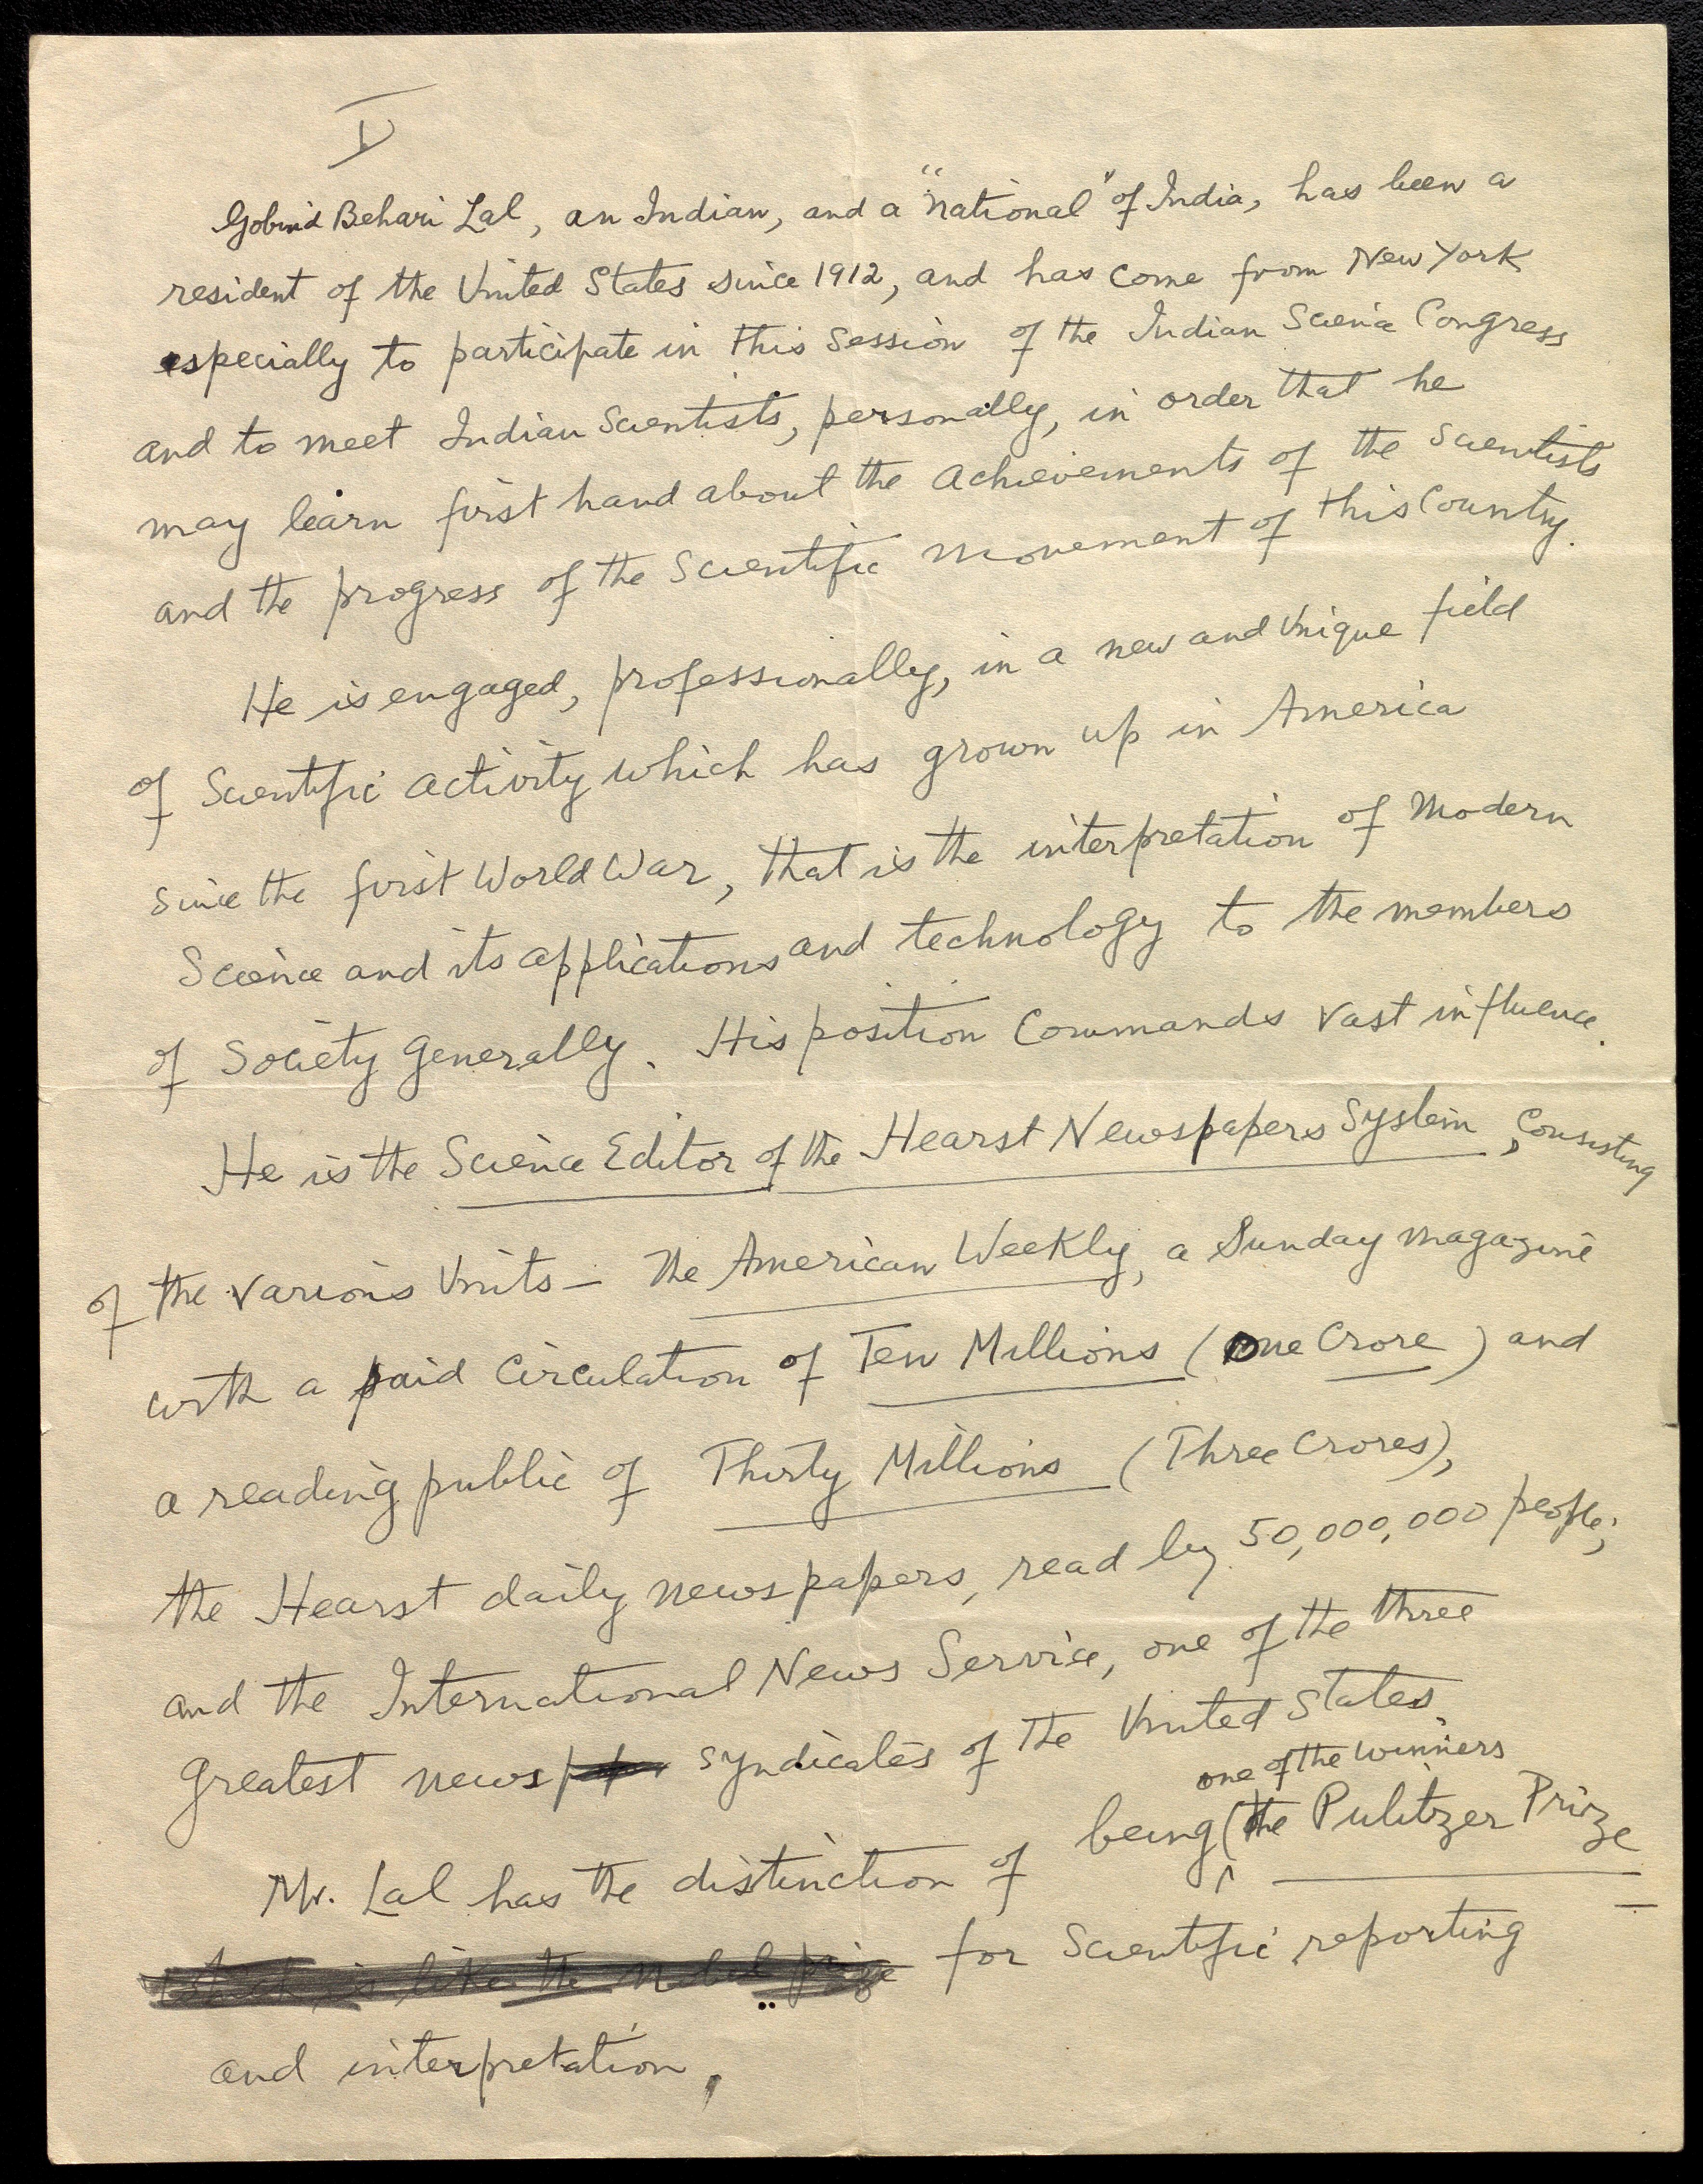 I
Gobind Behari Lal, an Indian, and a "national" of India, has been a
resident of the United States since 1912, and has come from New York
especially to participate in this Session of the Indian Science Congress
and to meet Indian Scientists, personally, in order that he
may learn first hand about the achievements of the Scientists
and the progress of the Scientific movement of this Country.
He is engaged, professionally, in a new and unique field
of Scientific activity which has grown up in America
since the first World War, that is the interpretation of Modern
Science and its applications and technology to the members
of Society generally. His position Commands vast influence.
He is the Science Editor of the Hearst Newspapers System, Consisting
of the various Units — The American Weekly, a Sunday magazine
with a paid Circulation of Ten Millions (One Crore) and
a reading public of Thirty Millions (Three Crores),
the Hearst daily newspapers, read by 50,000,000 people;
and the International News Service, one of the three
greatest news syndicates of the United States.
one of the winners
Mr. Lal has the distinction of being (the Pulitzer Prize
which is like the Nobel prize for Scientific reporting
and interpretation,